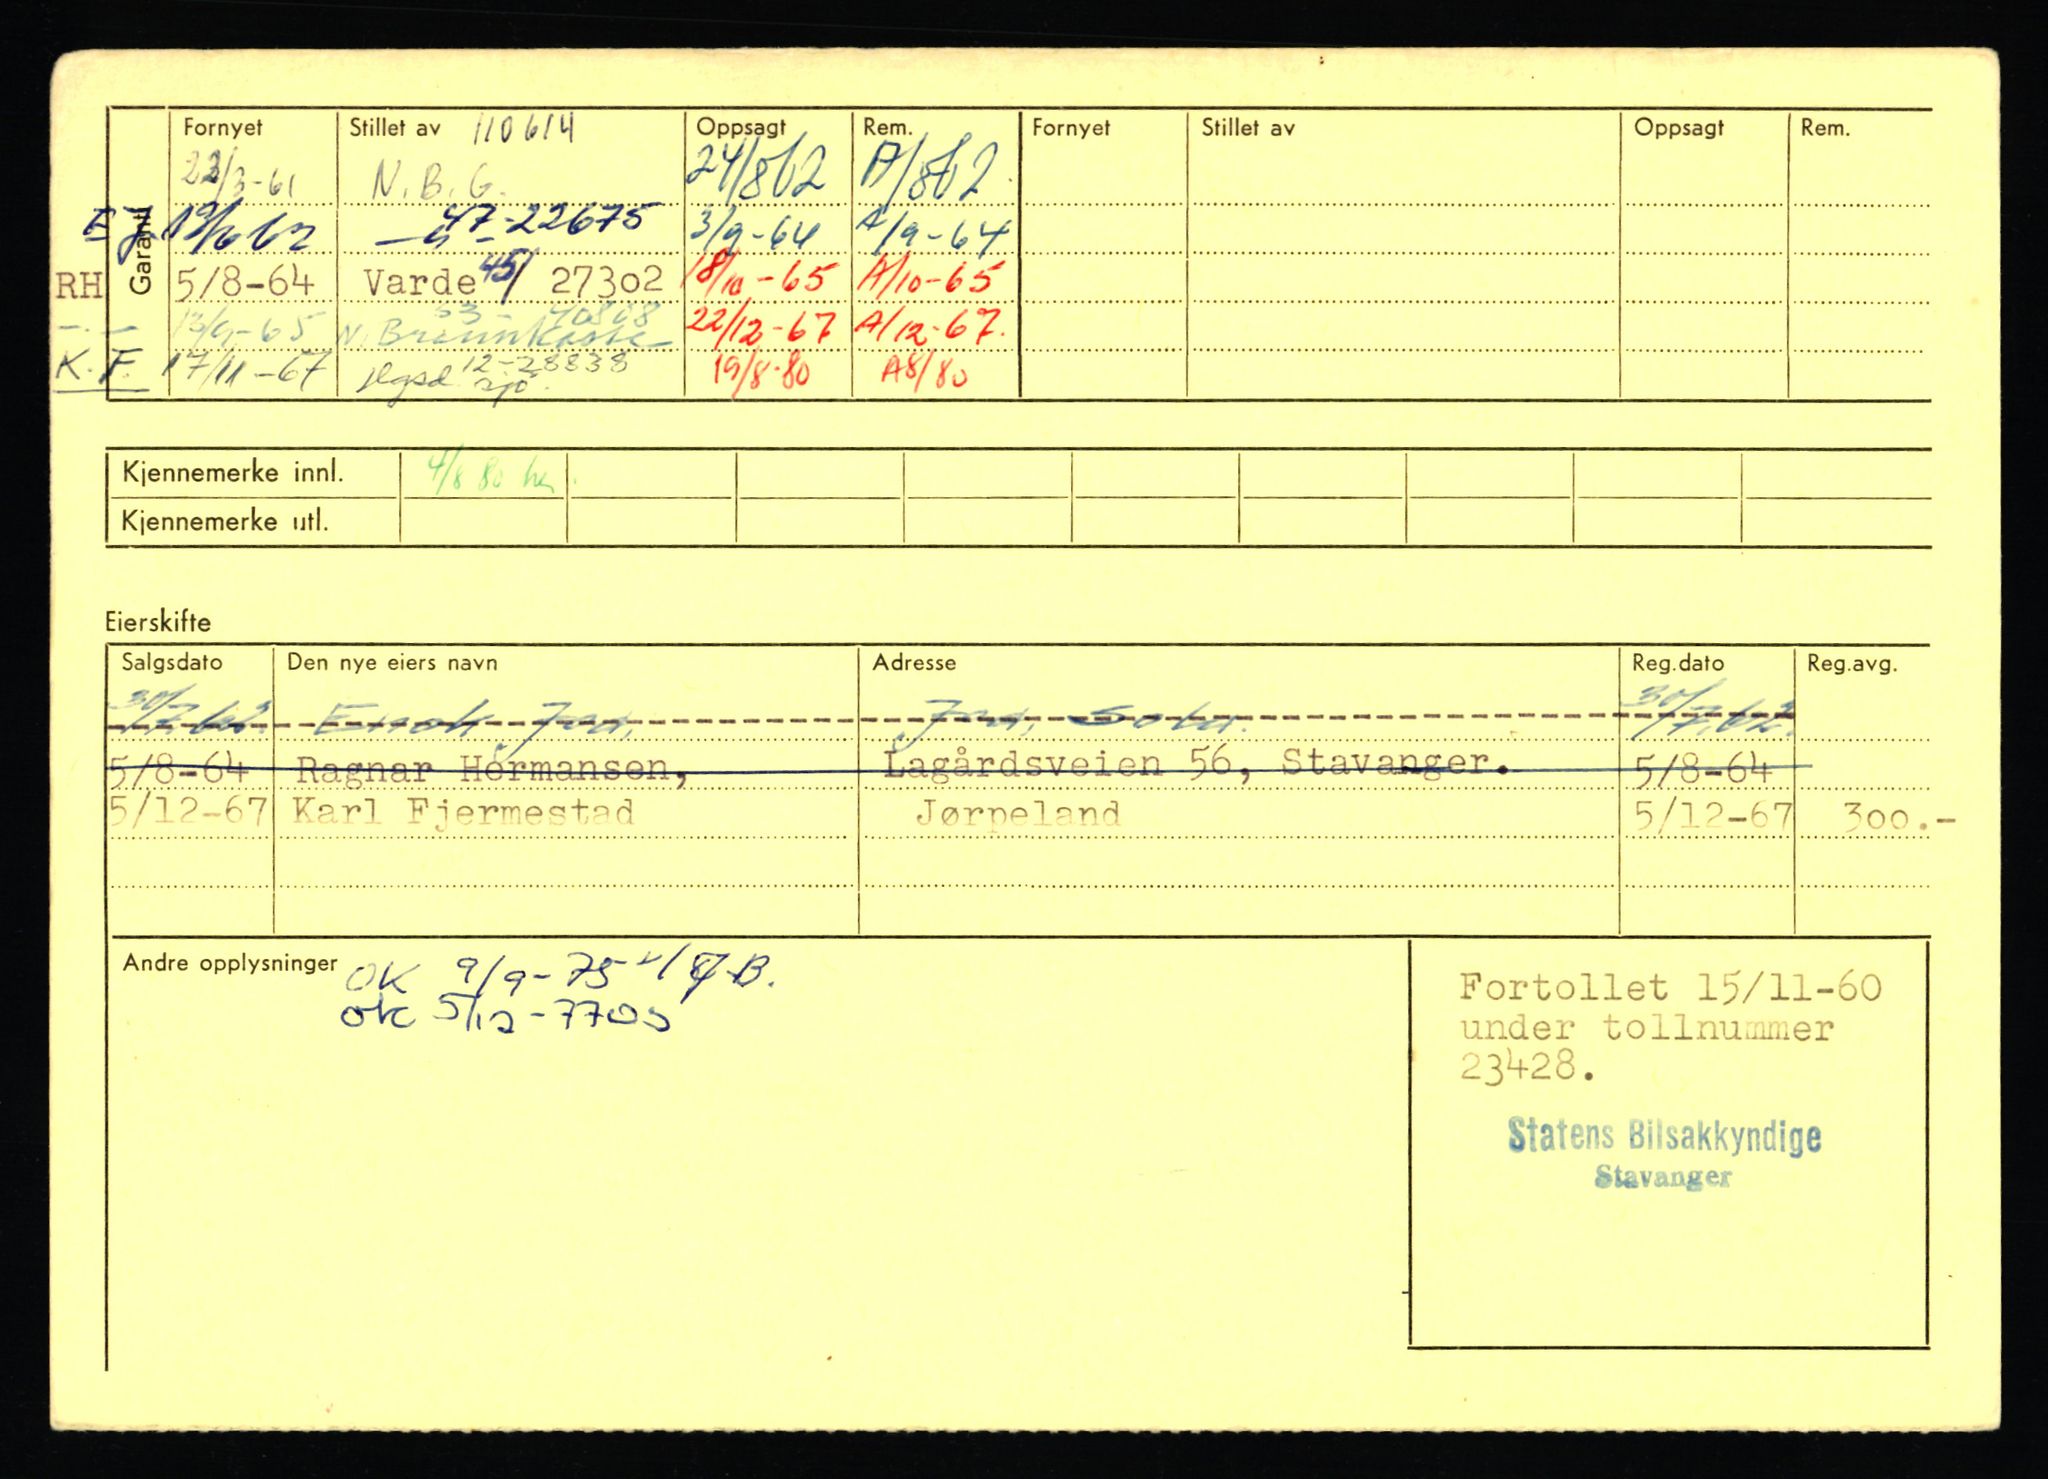 Garanti
Fornyet Stillet av 110614 Oppsagt Rem. Fornyet Stillet av Oppsagt Rem.
22/3-61 N.B.G. 24/8 62 A/8 62.
EJ 19/6 62 — " — 47-22675 3/9-64 A/9-64
RH 5/8-64 Varde 45/ 27302 18/10-65 A/10-65
-.- 13/9-65 N. Brannkasse 53- 40808 22/12-67 A/12-67.
K.F. 17/11-67 12-28838 19/8-80 A8/80
Kjennemerke innl. 4/8 80
Kjennemerke utl.
Eierskifte
Salgsdato Den nye eiers navn Adresse Reg.dato Reg.avg.
30/7.62 Enok Jåsund, Sola. 30/7.62
5/8-64 Ragnar Hørmansen, Lagårdsveien 56, Stavanger. 5/8-64
5/12-67 Karl Fjermestad Jørpeland 5/12-67 300.-
Andre opplysninger OK 9/9-75
OK 5/12-77
Fortollet 15/11-60
under tollnummer
23428.
Statens Bilsakkyndige
Stavanger